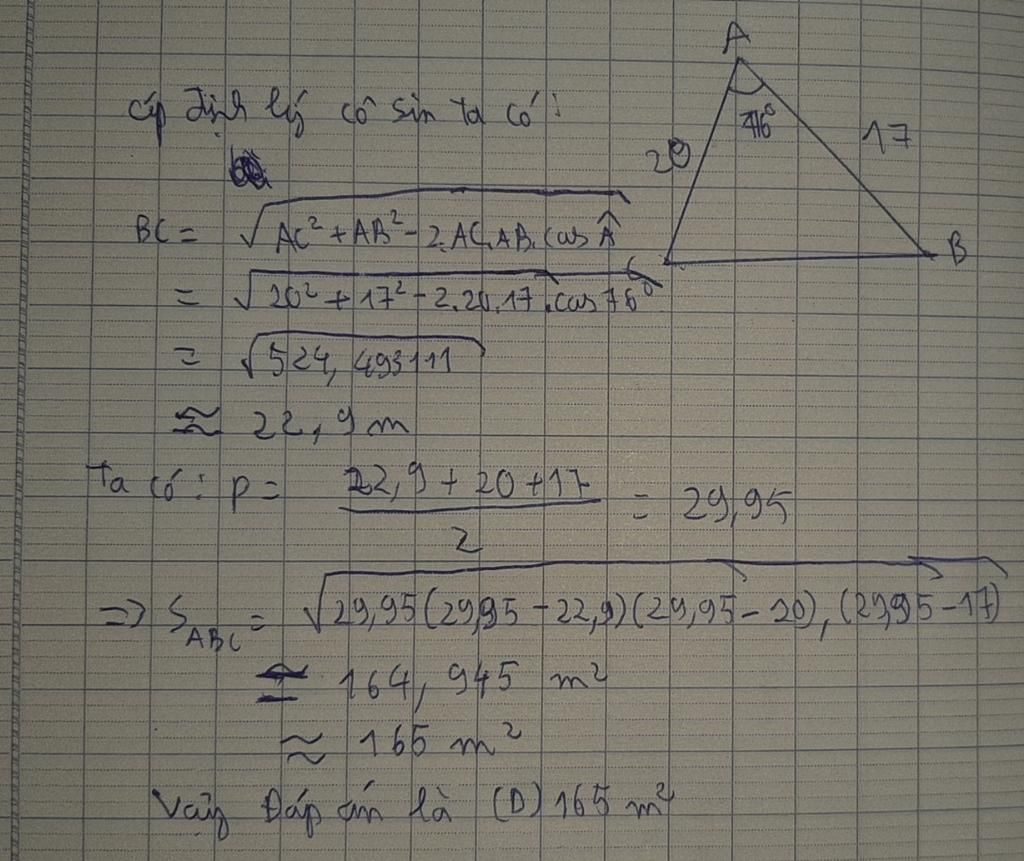 A
Áp định lý cô sin ta có:
76°
20
17
BC = √AC² + AB² - 2.AC.AB.cos Â
B
C
= √20² + 17² - 2.20.17.cos 76°
= √524,493111
≈ 22,9 m
Ta có: p = (22,9 + 20 + 17)/2 = 29,95
=> S_ABC = √29,95(29,95 - 22,9)(29,95 - 20).(29,95 - 17)
= 164,945 m²
≈ 165 m²
Vậy Đáp án là (D) 165 m²